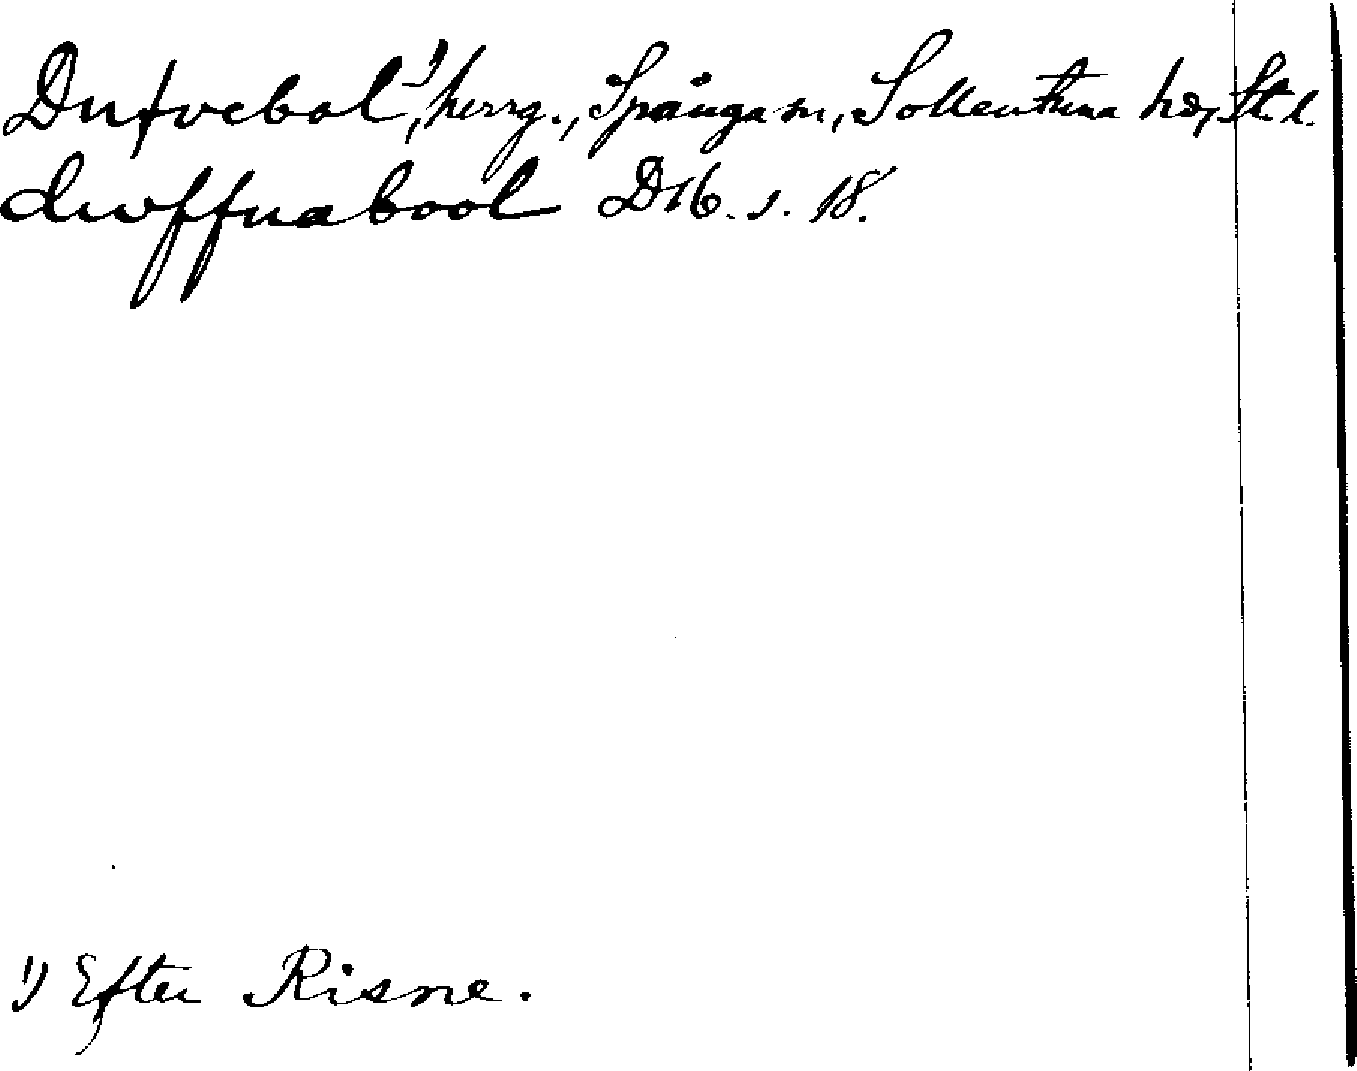 Dufvebol,¹⁾ herrg., Spånga sn, Sollentuna hd, St. l.
duffnabool D16. s. 18.
¹⁾ Efter Risne.